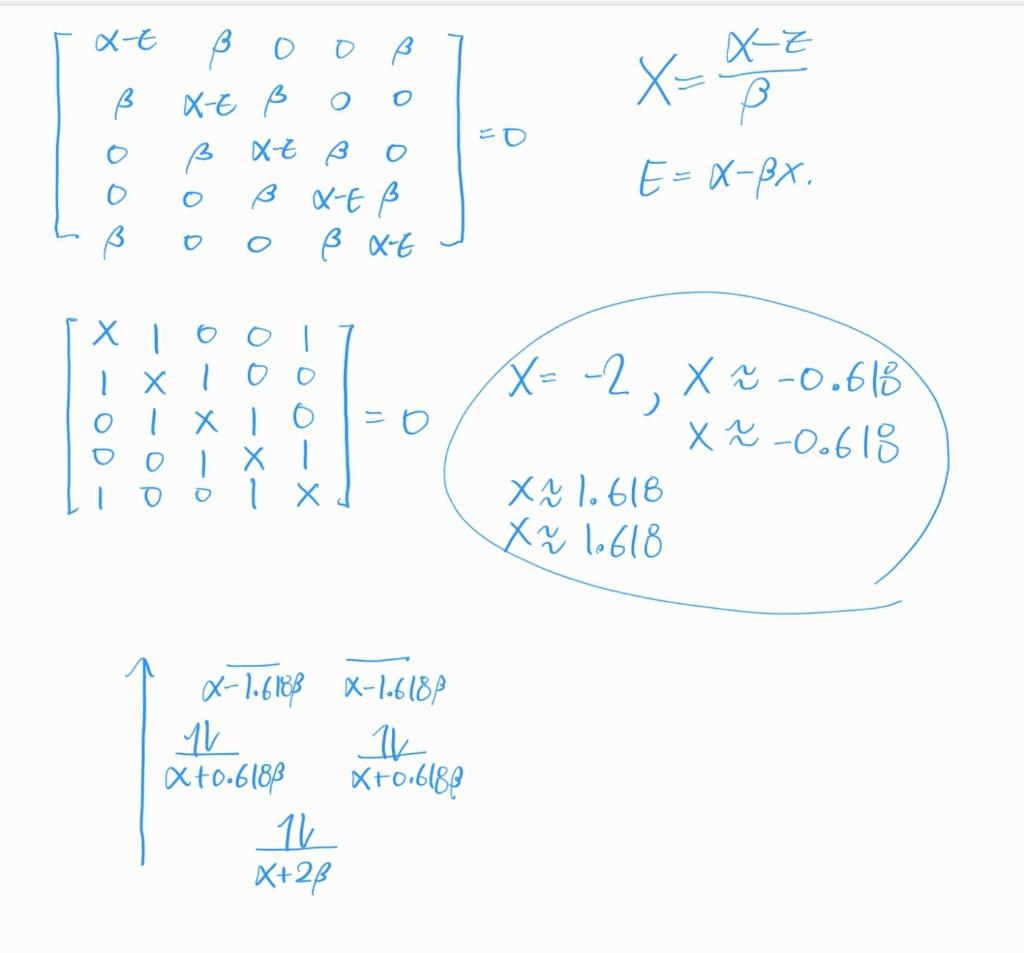 α-E β 0 0 β
β α-E β 0 0
0 β α-E β 0
0 0 β α-E β
β 0 0 β α-E
=0
X = α-E / β
E = α-βx.
X 1 0 0 1
1 X 1 0 0
0 1 X 1 0
0 0 1 X 1
1 0 0 1 X
= 0
X = -2, X ≈ -0.618
X ≈ -0.618
X ≈ 1.618
X ≈ 1.618
α-1.618β α-1.618β
1L 1L
α+0.618β α+0.618β
1L
α+2β